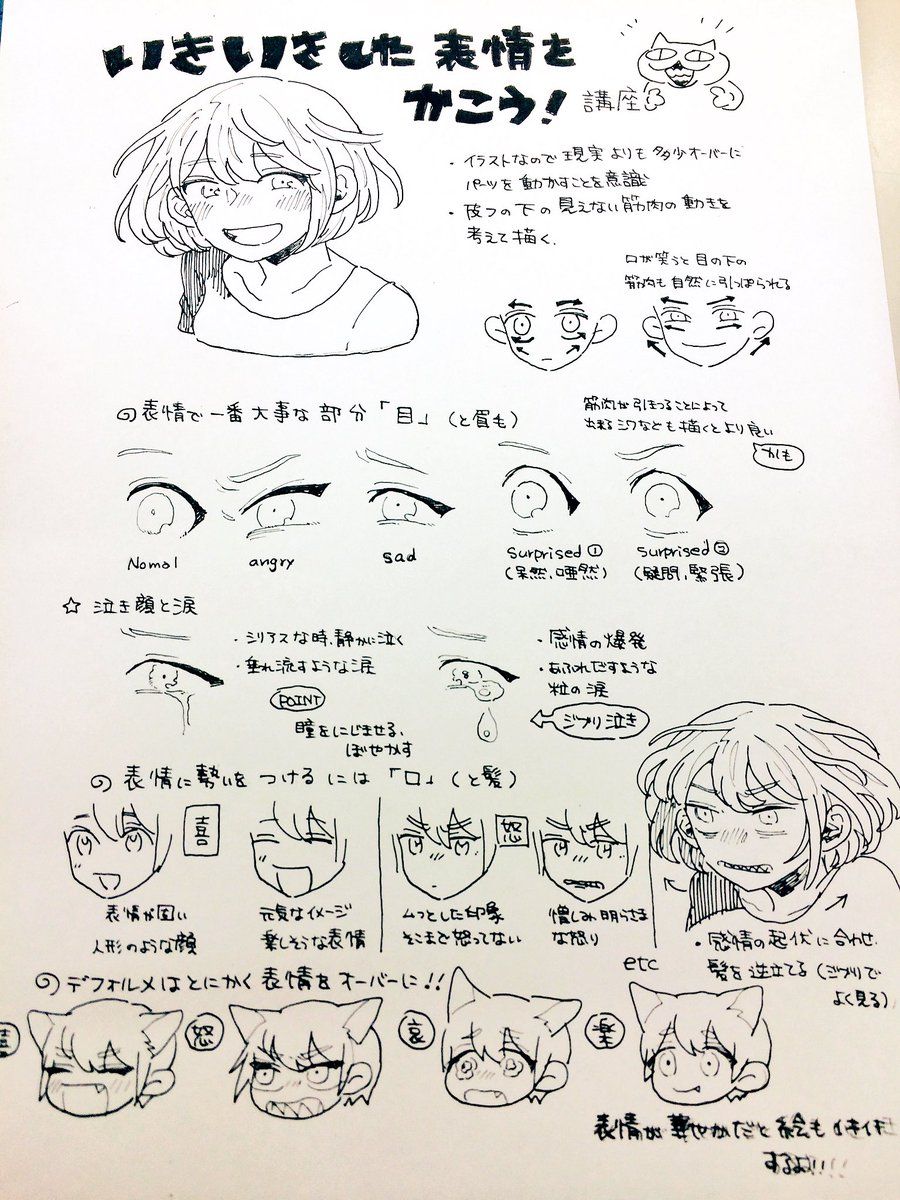 いきいきした表情を
かこう!
講座
・イラストなので現実よりも多少オーバーに
パーツを動かすことを意識
・皮フの下の見えない筋肉の動きを
考えて描く.
口が笑うと目の下の
筋肉も自然に引っぱられる
表情で一番大事な部分「目」(と眉も)
筋肉が引きつることによって
出来るシワなども描くとより良い
かも
Nomal
angry
sad
surprised①
(呆然、唖然)
surprised②
(疑問、緊張)
☆ 泣き顔と涙
・シリアスな時、静かに泣く
・垂れ流すような涙
POINT
瞳をにじませる、
ぼやかす
・感情の爆発
・あふれだすような
粒の涙
ジブリ泣き
表情に勢いをつけるには「口」(と髪)
喜
表情が固い
人形のような顔
元気なイメージ
楽しそうな表情
怒
ムっとした印象
そこまで怒ってない
憎しみ明らさま
な怒り
etc
・感情の起伏に合わせ、
髪を逆立てる(ジブリで
よく見る)
デフォルメはとにかく表情をオーバーに!!
喜
怒
哀
楽
表情が華やかだと絵もいきいき
するよ!!!!